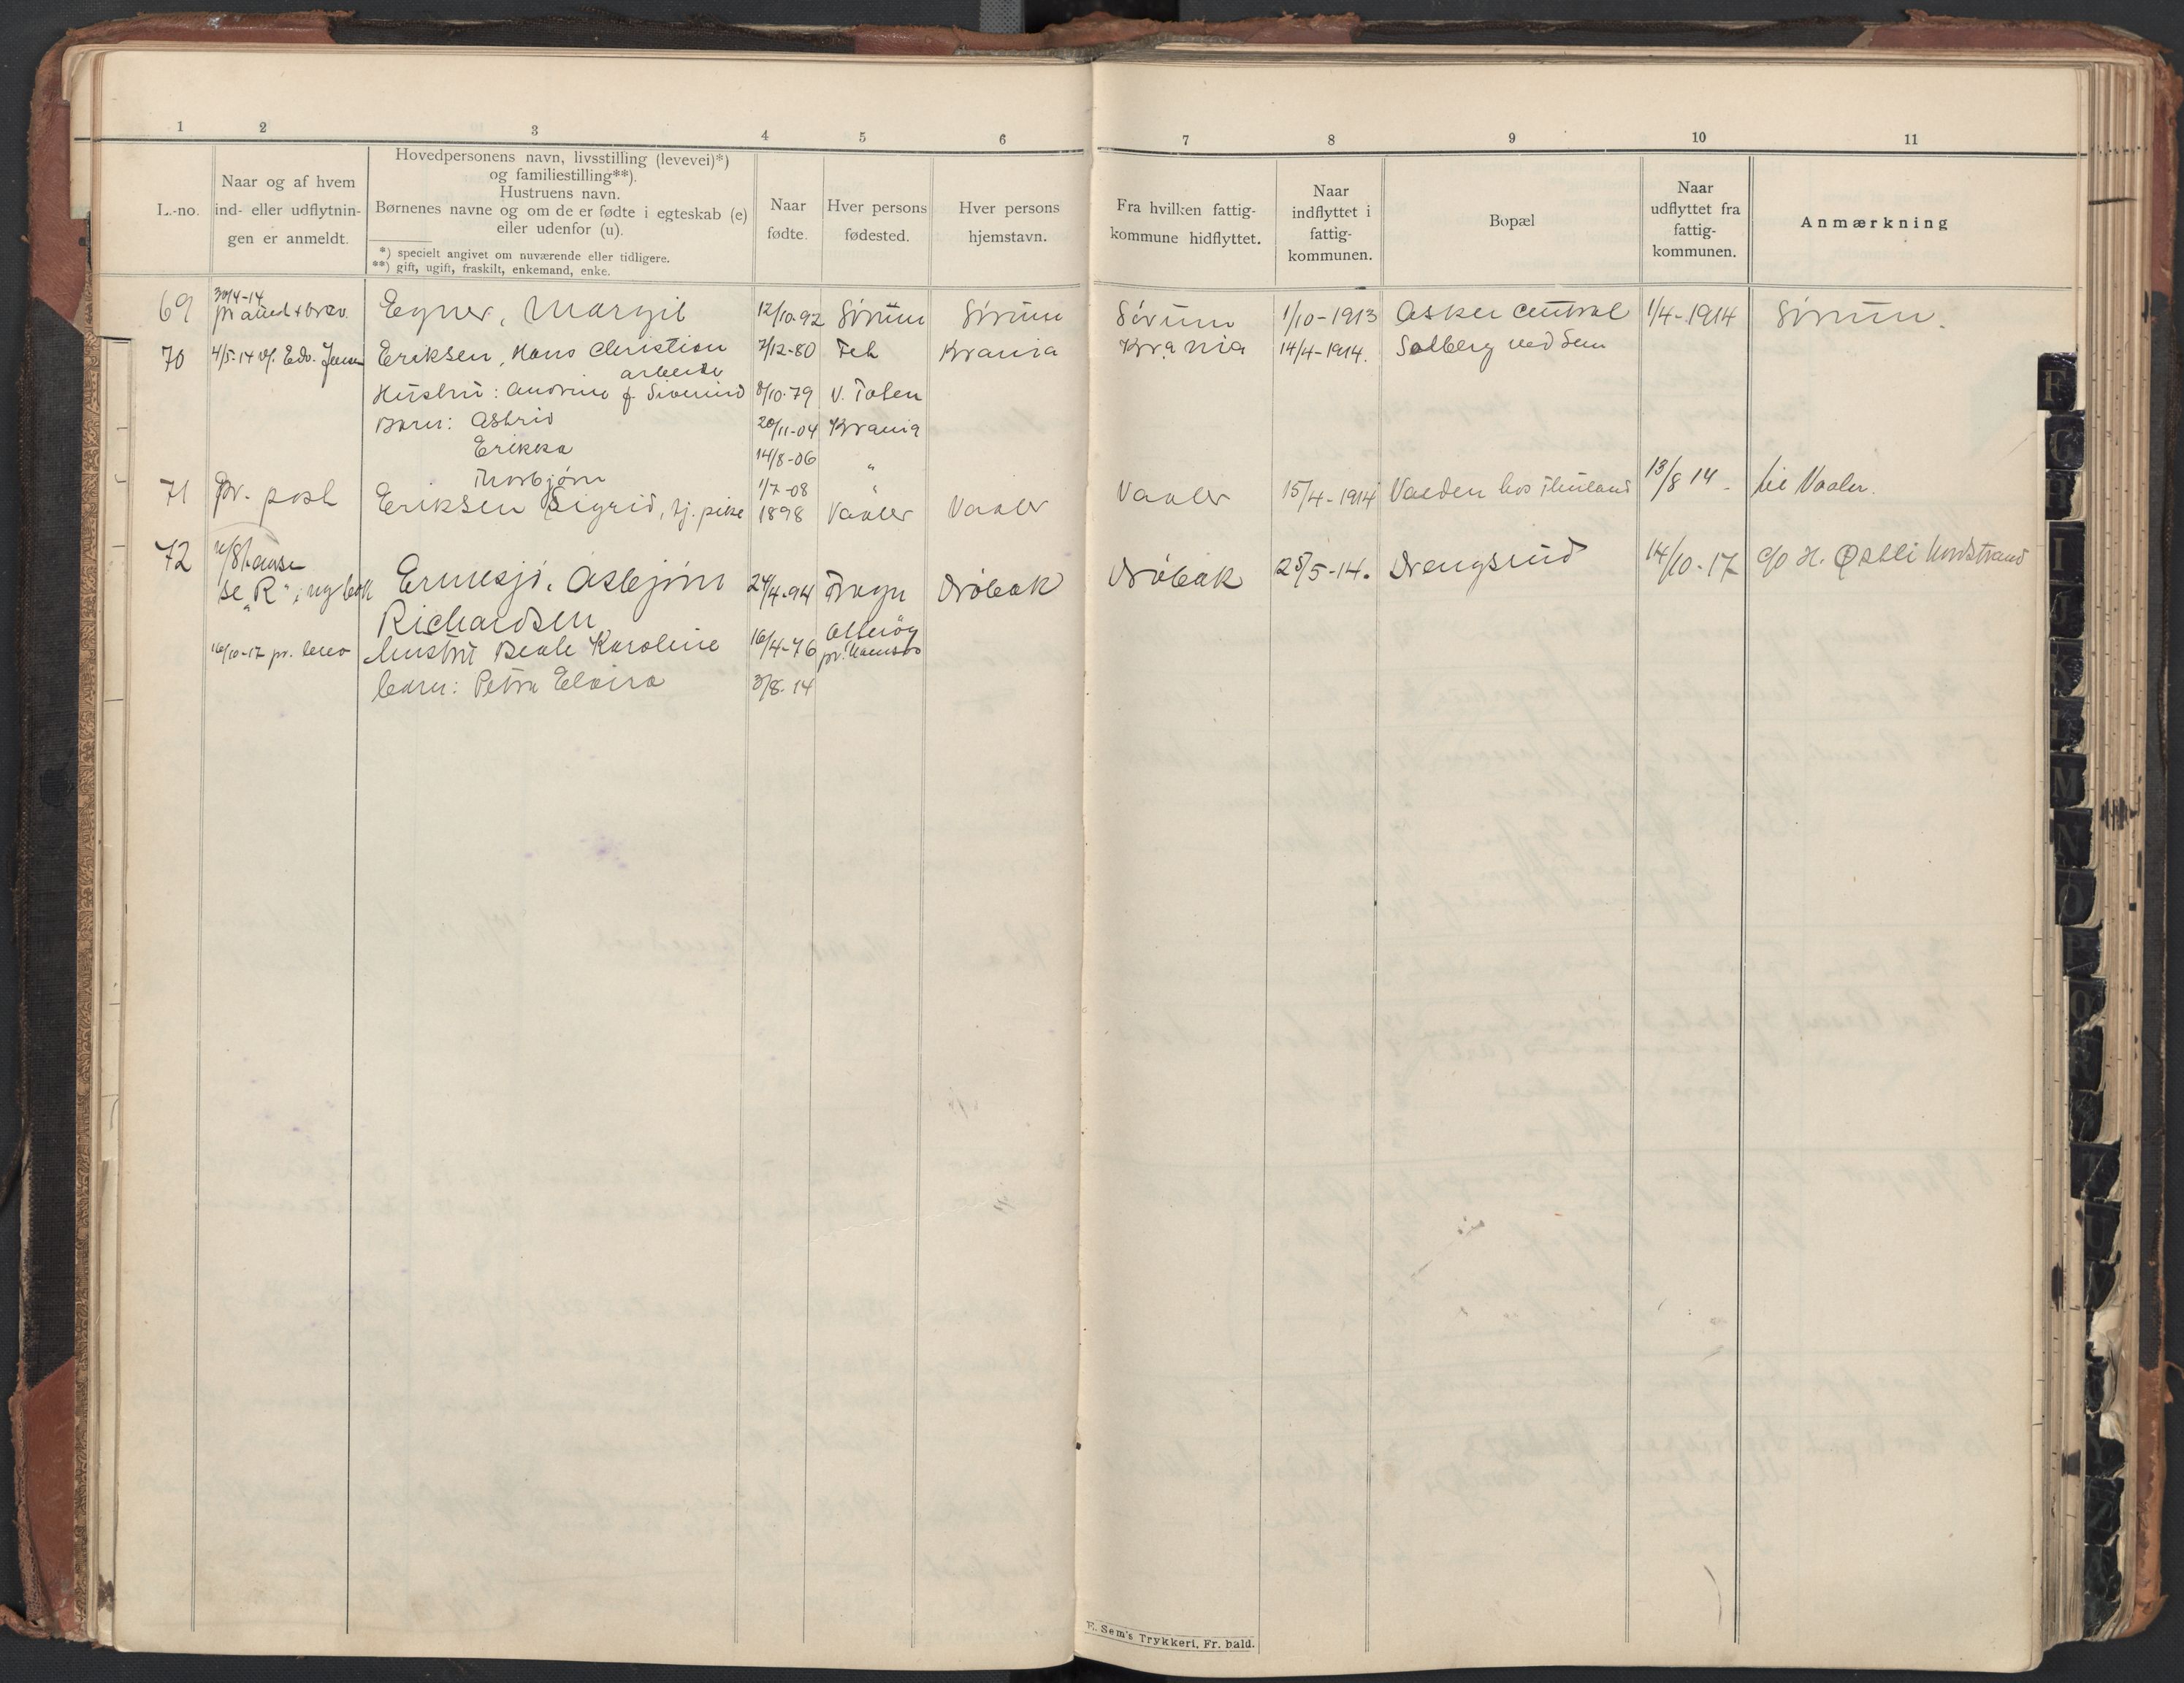 1 2 3 4 5 6 7 8 9 10 11
L.-no.
Naar og af hvem
ind- eller udflytnin-
gen er anmeldt.
Hovedpersonens navn, livsstilling (levevei)*)
og familiestilling**).
Hustruens navn.
Børnenes navne og om de er fødte i egteskab (e)
eller udenfor (u).
*) specielt angivet om nuværende eller tidligere.
**) gift, ugift, fraskilt, enkemand, enke.
Naar
fødte.
Hver persons
fødested.
Hver persons
hjemstavn.
Fra hvilken fattig-
kommune hidflyttet.
Naar
indflyttet i
fattig-
kommunen.
Bopæl
Naar
udflyttet fra
fattig-
kommunen.
Anmærkning
30/4-14
69 Egner, Margit 12/10-92 Sørum Sørum Sørum 1/10-1913 Asker Central 1/4-1914 Sørum.
70 4/5-14 v/. Edv. Jensen Eriksen, Hans Christian 7/12-80 Fet Krania Krania 14/4-1914. Solberg ved Sem
arbeider
Hustru: Andrine f. 8/10-79 V. Toten
Barn: Astrid 20/11-04 Krania
Erikka 14/8-06 "
Thorbjørn 1/7-08 "
71 pr. post Eriksen Sigrid, tj. pike 1898 Vaaler Vaaler Vaaler 15/4-1914 Valden hos 13/8 14 - til Vaaler.
72
se "R", ny bok Ermesjø, Asbjørn 24/4-94 Drøbak Drøbak 28/5-14. Drengsrud 14/10-17 c/o H. Østli Nordstrand
Richardsen
16/10-17 pr. brev hustru Beate Karoline 16/4-76
barn: Petra Elvira 3/8-14
E. Sem's Trykkeri, Fr. hald.
F
G
I
J
K
L
M
N
O
P
Q
R
S
T
U